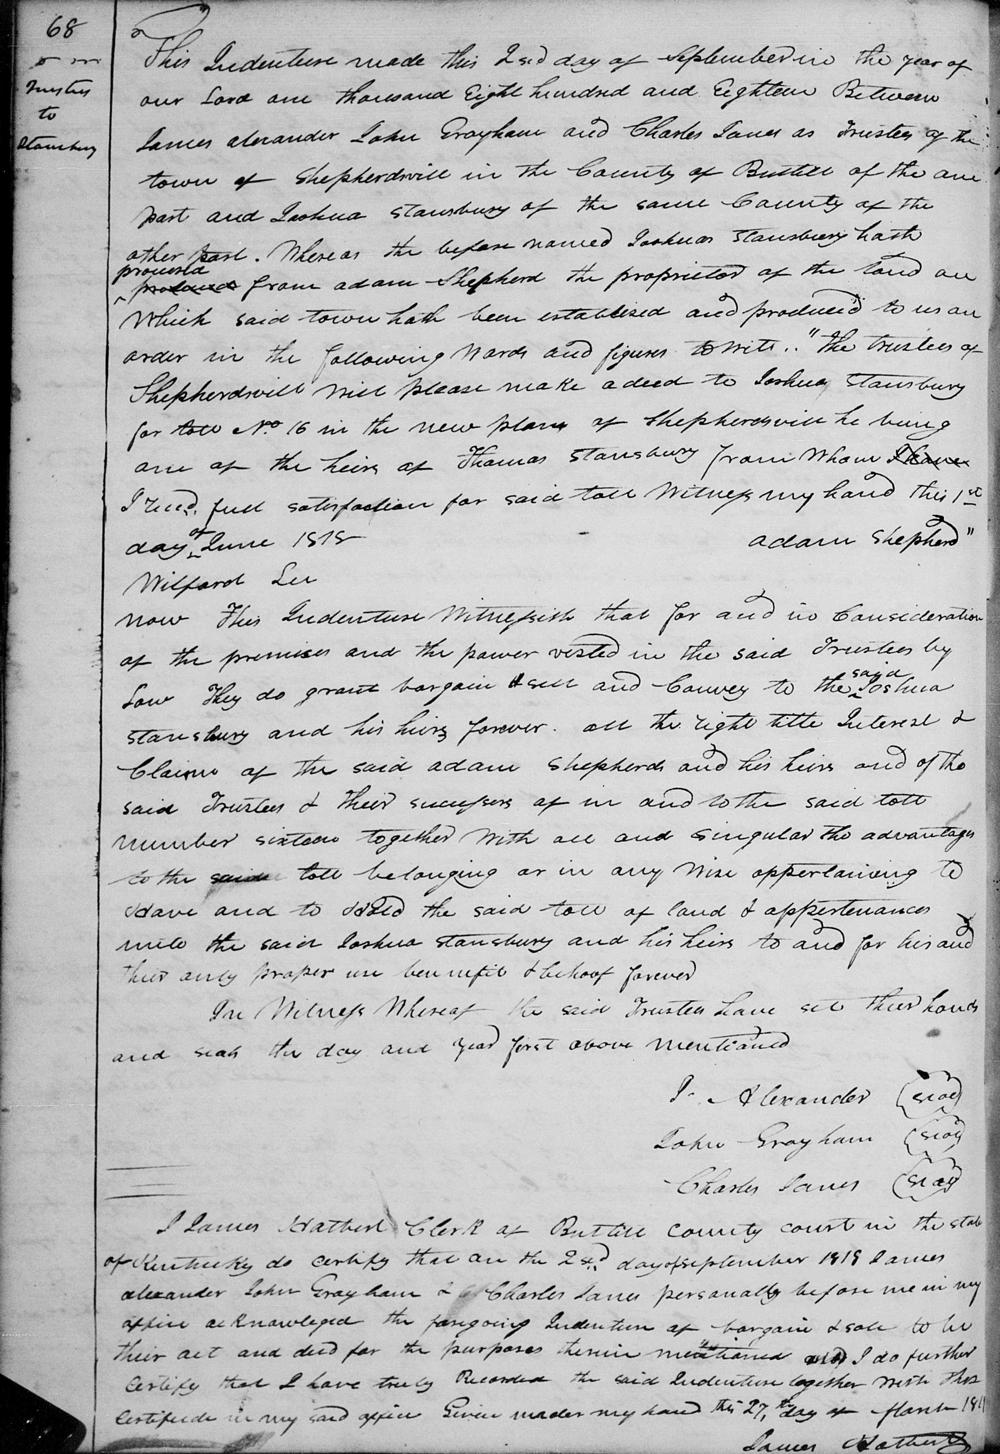 68
Trustees
to
Stansbury
This Indenture made this 2nd day of September in the year of
our Lord one thousand Eight hundred and Eighteen Between
James alexander John Grayham and Charles Janes as Trustees of the
town of Shepherdsvill in the County of Bullitt of the one
part and Joshua Stansbury of the same County of the
other part. Whereas the before named Joshua Stansbury hath
procured
from adam Shepherd the proprietor of the land on
Which said town hath been establised and produced to us an
order in the following Words and figures to Wit.. "The trustees of
Shepherdsvill Will please make a deed to Joshua Stansbury
for lott No 16 in the new plan of Shepherdsvill he being
one of the heirs of Thomas Stansbury from Whom I have
I recd. full satisfaction for said lott Witness my hand this 1st
day of June 1818 adam Shepherd"
Wilford Lee
now This Indenture Witnesseth that for and in Consideration
of the premises and the power vested in the said Trustees by
Law They do grant bargain & sell and Convey to the said Joshua
Stansbury and his heirs forever. all the right title Interest &
Claim of the said adam Shepherds and his heirs and of the
said Trustees & their sucessors of in and to the said lott
number sixteen together With all and singular the advantages
to the said lott belonging or in any Wise appertaining to
Have and to Hold the said lott of land & appertenances
unto the said Joshua Stansbury and his heirs to and for his and
their only proper use bennifit & behoof forever
In Witness Whereof the said Trustees have set their hands
and seals the day and year first above mentioned
J. Alexander (seal)
John Grayham (seal)
Charles Janes (seal)
I James Halbert Clerk of Bullitt County court in the state
of Kentucky do certify that on the 2nd day of september 1818 James
alexander John Grayham & Charles Janes personally before me in my
office acknowleged the foregoing Indenture of bargain & sale to be
their act and deed for the purposes therein mentioned and I do further
certify that I have truly Recorded the said Indenture together With this
Certificate in my said office Given under my hand this 27th day of March 181
James Halbert